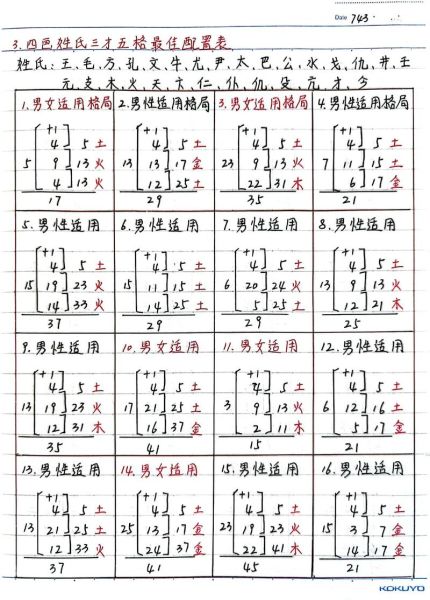 Date 743 ·
3.四画姓氏三才五格最佳配置表
姓氏:王、毛、方、孔、文、牛、尤、尹、太、巴、公、水、戈、仇、井、壬
元、支、木、火、天、卞、仁、仆、仉、殳、亢、才、今
1.男女适用格局 2.男性适用格局 3.男女适用格局 4.男性适用格局
+1 +1 +1 +1
4 5 土 4 5 土 4 5 土 4 5 土
5 9 13 火 13 13 17 金 23 9 13 火 7 11 15 土
4 13 火 12 25 土 22 31 木 6 17 金
17 29 35 21
5.男性适用 6.男性适用 7.男性适用 8.男性适用
+1 +1 +1 +1
4 5 土 4 5 土 4 5 土 4 5 土
15 19 23 火 15 11 15 土 6 20 24 火 13 9 13 火
14 33 火 14 25 土 5 25 土 12 21 木
37 29 29 25
9.男性适用 10.男女适用 11.男女适用 12.男性适用
+1 +1 +1 +1
4 5 土 4 5 土 4 5 土 4 5 土
13 19 23 火 17 21 25 土 3 9 13 火 6 12 16 土
12 31 木 16 37 金 2 11 木 5 17 金
35 41 15 21
13.男性适用 14.男女适用 15.男性适用 16.男性适用
+1 +1 +1 +1
4 5 土 4 5 土 4 5 土 4 5 土
13 21 25 土 25 13 17 金 23 19 23 火 15 3 7 金
12 33 火 24 37 金 22 41 木 14 17 金
37 41 45 21
KOKUYO